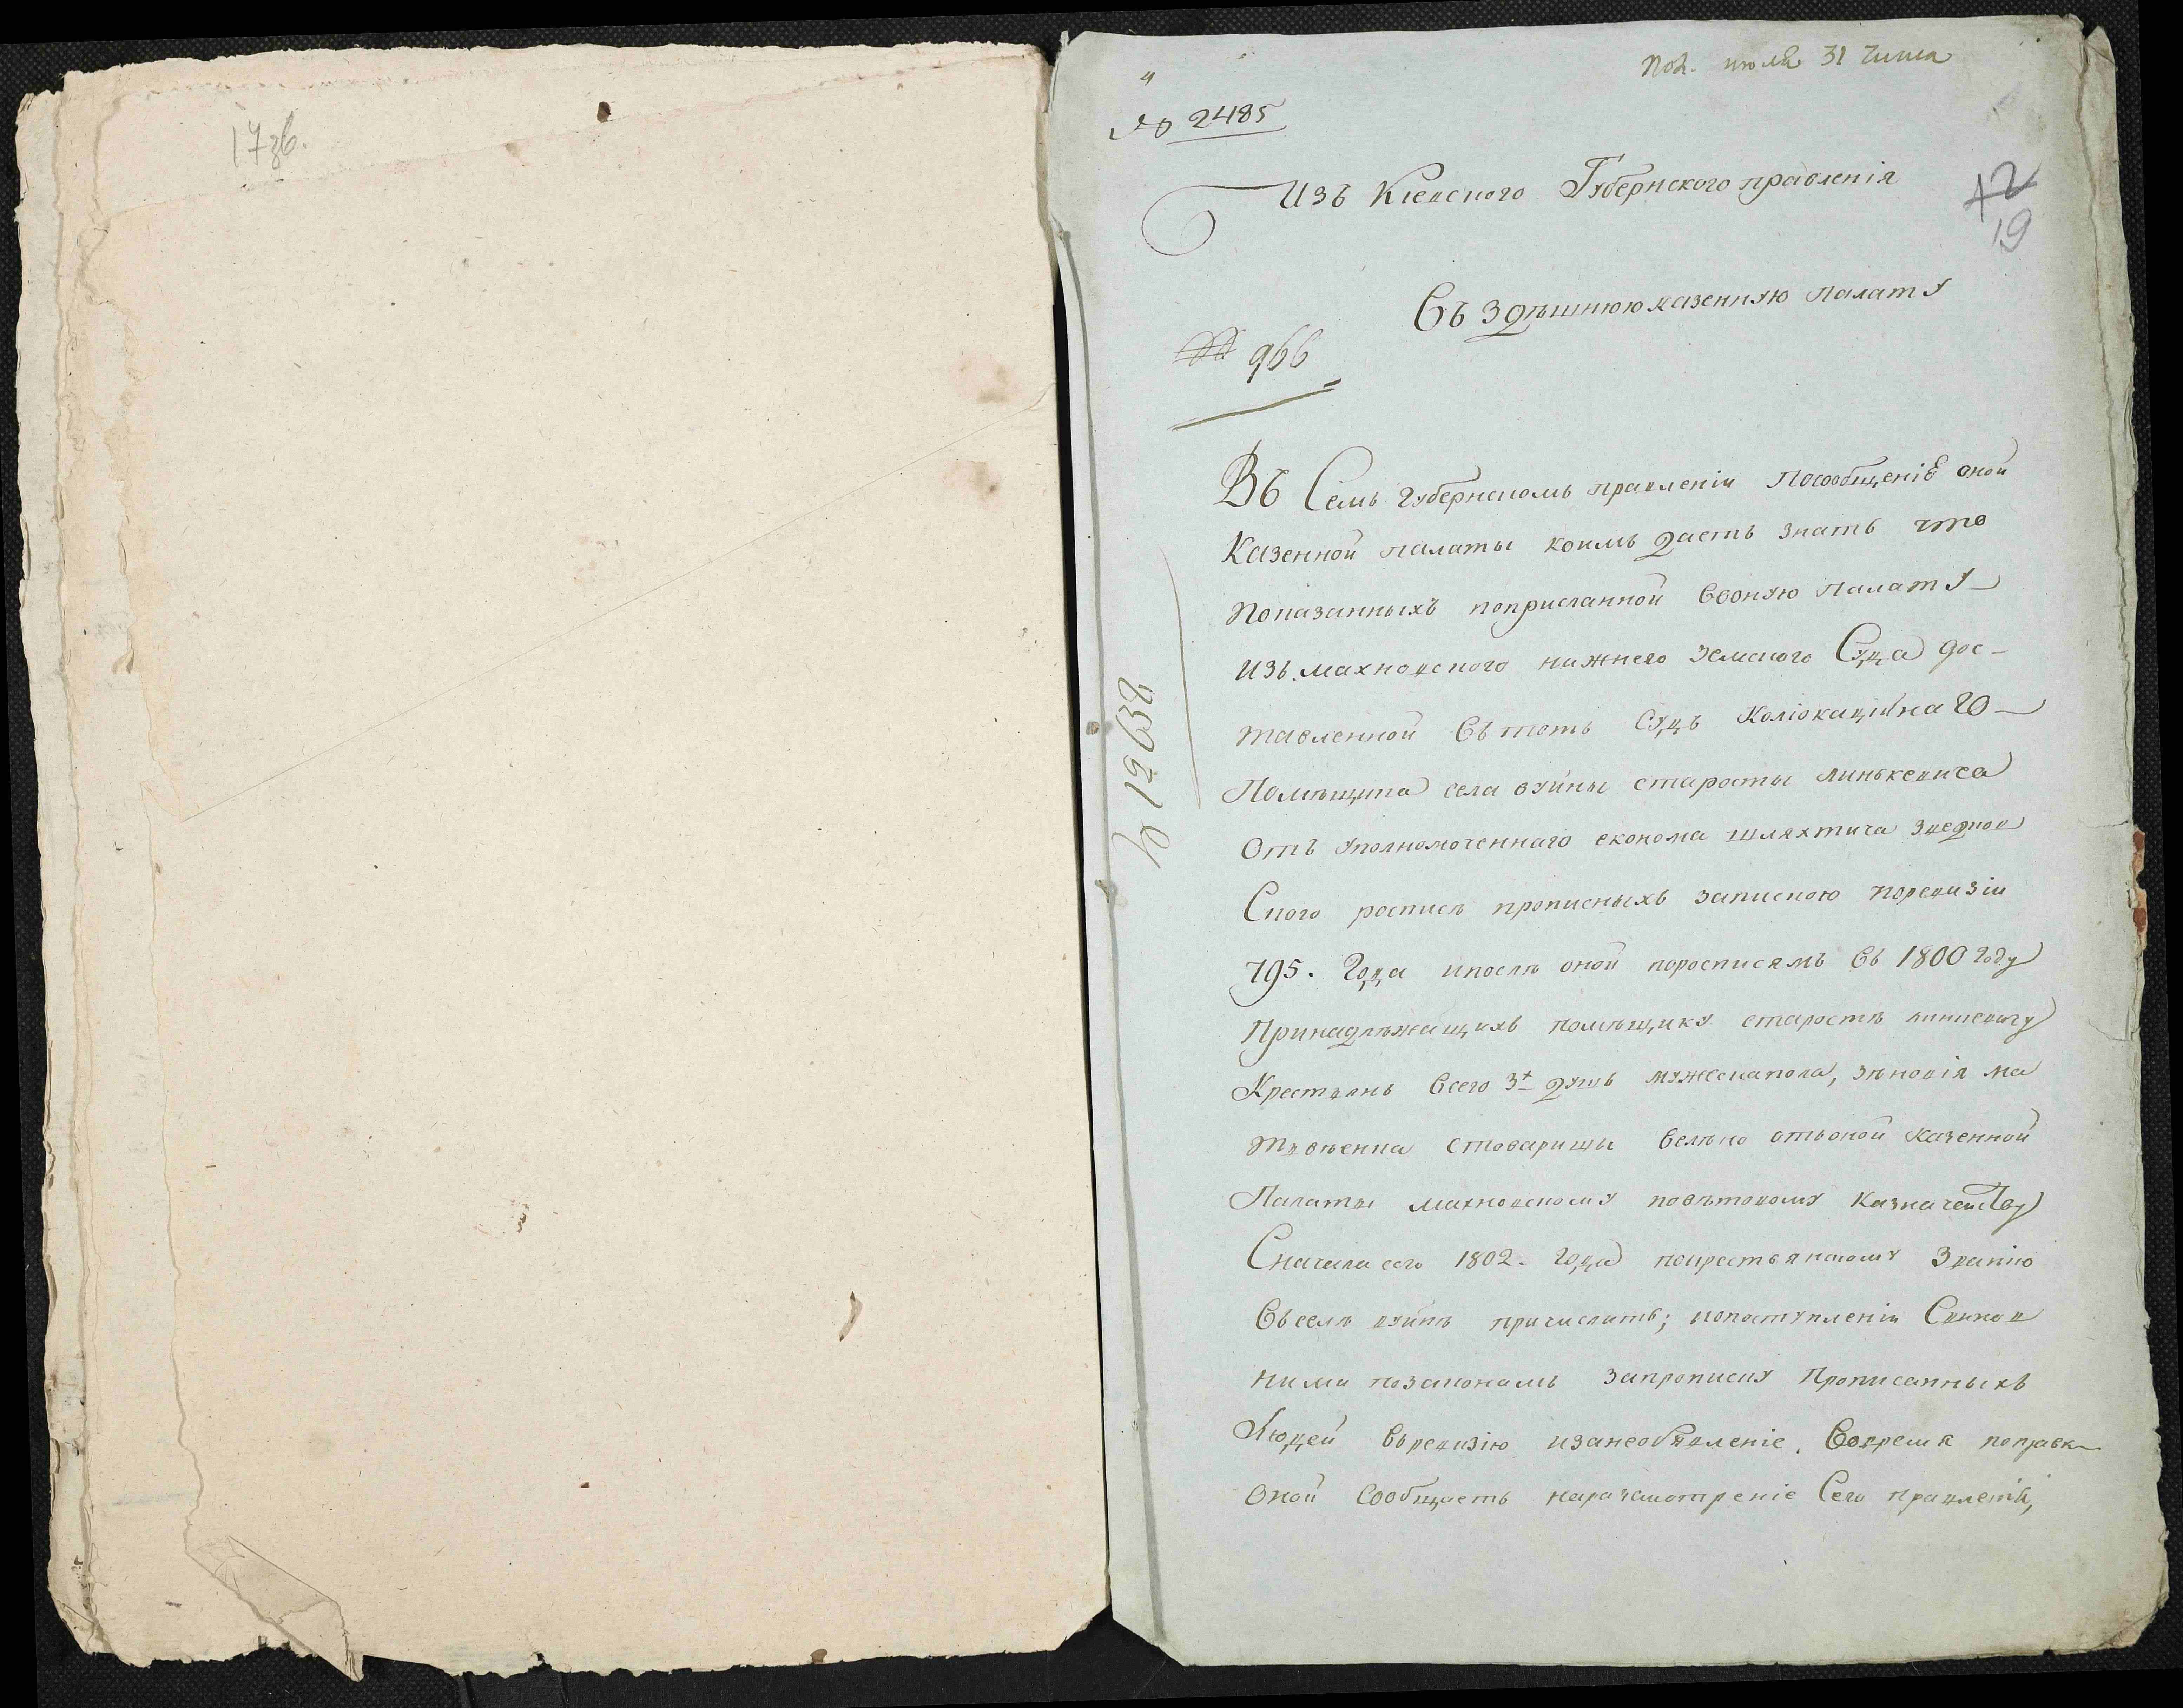 17зв.
пол. июля 31 числа
№ 2485
12
19
Изъ Киевского Губернского правленія
Въ здѣшнюю казенную палату
№ 966
№ 12638
Въ Семъ губернскомъ правленіи Посообщеніе оной
Казенной палаты коимъ даетъ знать что
Показанныхъ поприсланной Вооную палату
изъ махновского нижнего земского Суда дос-
тавленной Въ тотъ судъ Коліокаційнаго
Помѣщика села вуйны старосты линькевича
Отъ уполномоченнаго економа шляхтича
Сного росписѣ прописныхъ запискою поревизіи
795. Года ипослѣ оной поросписямъ Въ 1800 году
Принадлѣжащихъ помѣщику старостѣ линкевичу
Крестьянъ Всего 3х душъ мужескапола, зѣновія ма
твѣенка стоварищы велѣно отьоной казенной
Палаты махновскому повѣтовому казначейству
Сначала сего 1802. года покрестьянскому Званію
Въселѣ вуйнѣ причислить; ипоступленіи Свинов
ними позаконамъ запрописку Прописанныхъ
Людей Въревизію изанеобявленіе. Вовремя поправк
Оной сообщаетъ наразсмотреніе Сего правленія,